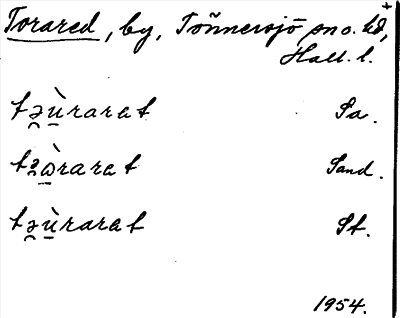 Torared, by, Tönnersjö sn o. hd,
Hall. l.
tə̯ù̱rarat Sa.
tɜ̯ɷ̱̀rarat Sand.
tə̯ù̱rarat St.
1954.